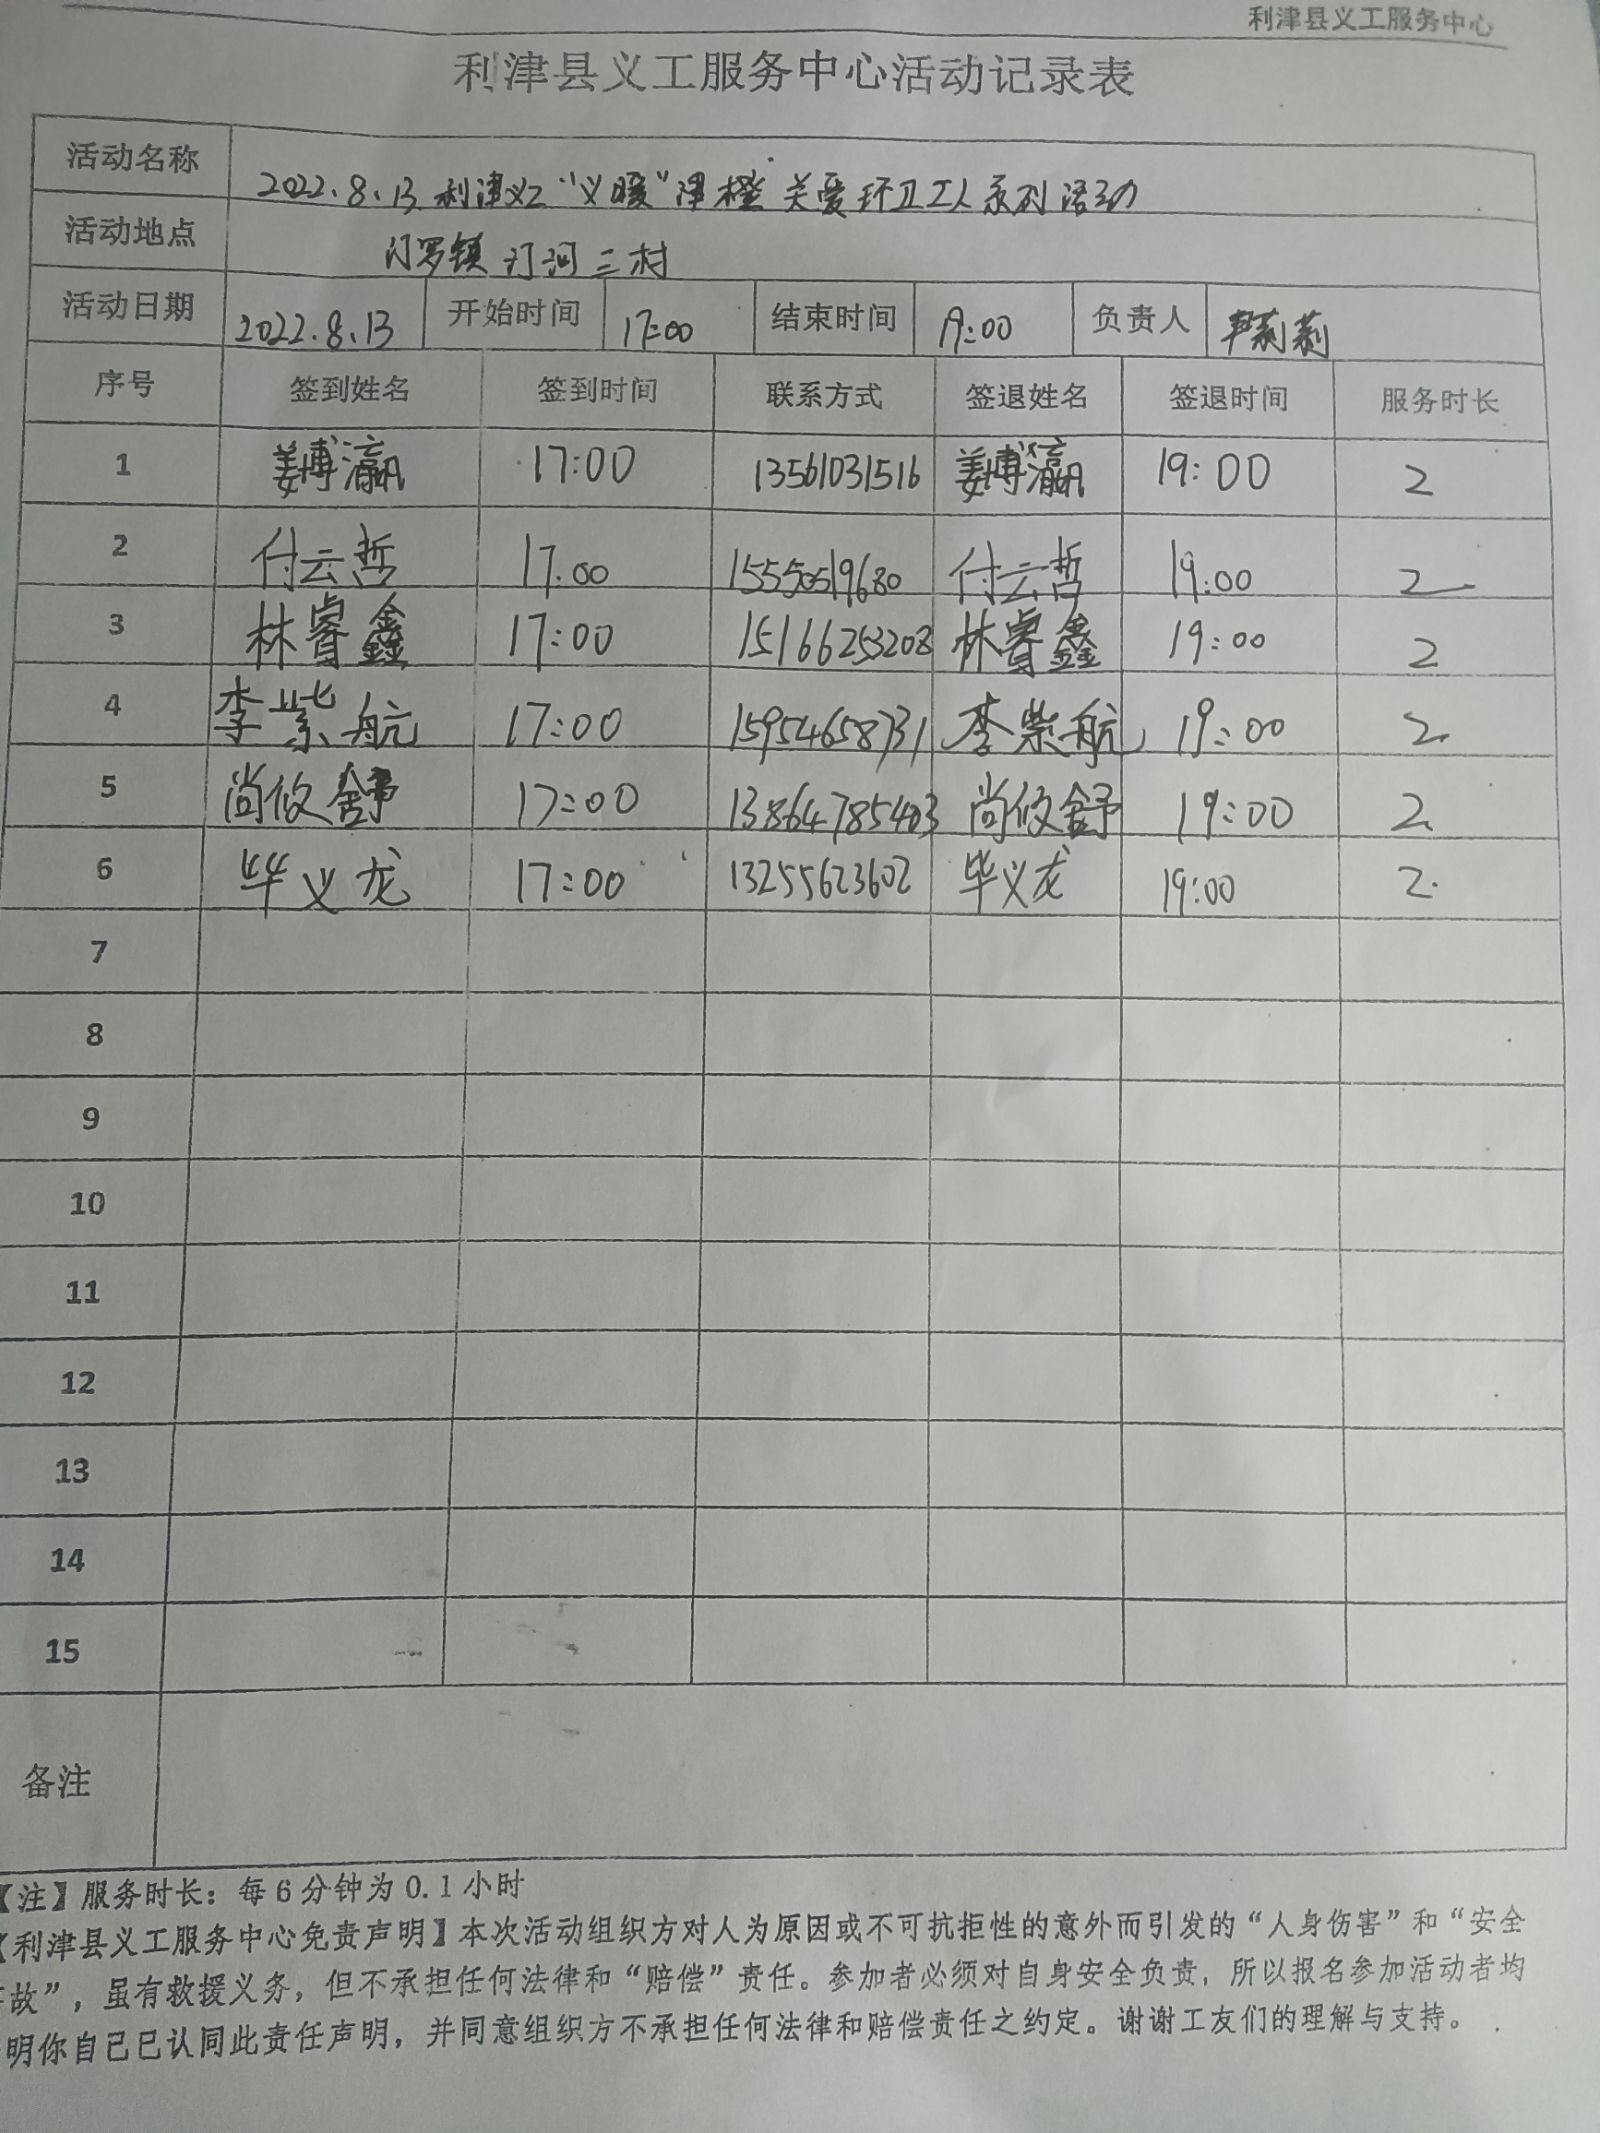 利津县义工服务中心
利津县义工服务中心活动记录表
活动名称 2022.8.13 利津义工“义暖”津橙 关爱环卫工人系列活动
活动地点 汀罗镇 汀河三村
活动日期 2022.8.13 开始时间 17:00 结束时间 19:00 负责人 莉莉
序号 签到姓名 签到时间 联系方式 签退姓名 签退时间 服务时长
1 姜博瀛 17:00 13561031516 姜博瀛 19:00 2
2 付云哲 17:00 15550519680 付云哲 19:00 2
3 林睿鑫 17:00 15166253208 林睿鑫 19:00 2
4 李紫航 17:00 15954658731 李紫航 19:00 2
5 尚攸舒 17:00 13864785403 尚攸舒 19:00 2
6 毕义龙 17:00 13255623602 毕义龙 19:00 2
7
8
9
10
11
12
13
14
15
备注
【注】服务时长：每6分钟为0.1小时
【利津县义工服务中心免责声明】本次活动组织方对人为原因或不可抗拒性的意外而引发的“人身伤害”和“安全
故”，虽有救援义务，但不承担任何法律和“赔偿”责任。参加者必须对自身安全负责，所以报名参加活动者均
明你自己已认同此责任声明，并同意组织方不承担任何法律和赔偿责任之约定。谢谢工友们的理解与支持。